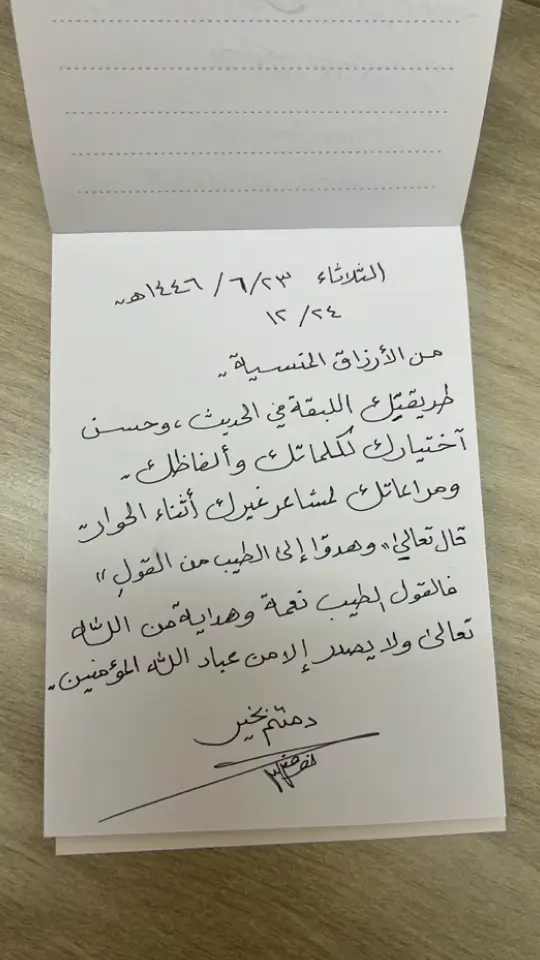 الثلاثاء ٢٣/ ٦/ ١٤٤٦هـ
٢٤/ ١٢
من الأرزاق المنسية..
طريقتك اللبقة في الحديث، وحسن
آختيارك لكلماتك وألفاظك..
ومراعاتك لمشاعر غيرك أثناء الحوار..
قال تعالى "وهدوا إلى الطيب من القولِ"
فالقول الطيب نعمة وهداية من الله
تعالى ولا يصدر إلا من عباد الله المؤمنين..
دمتم بخير